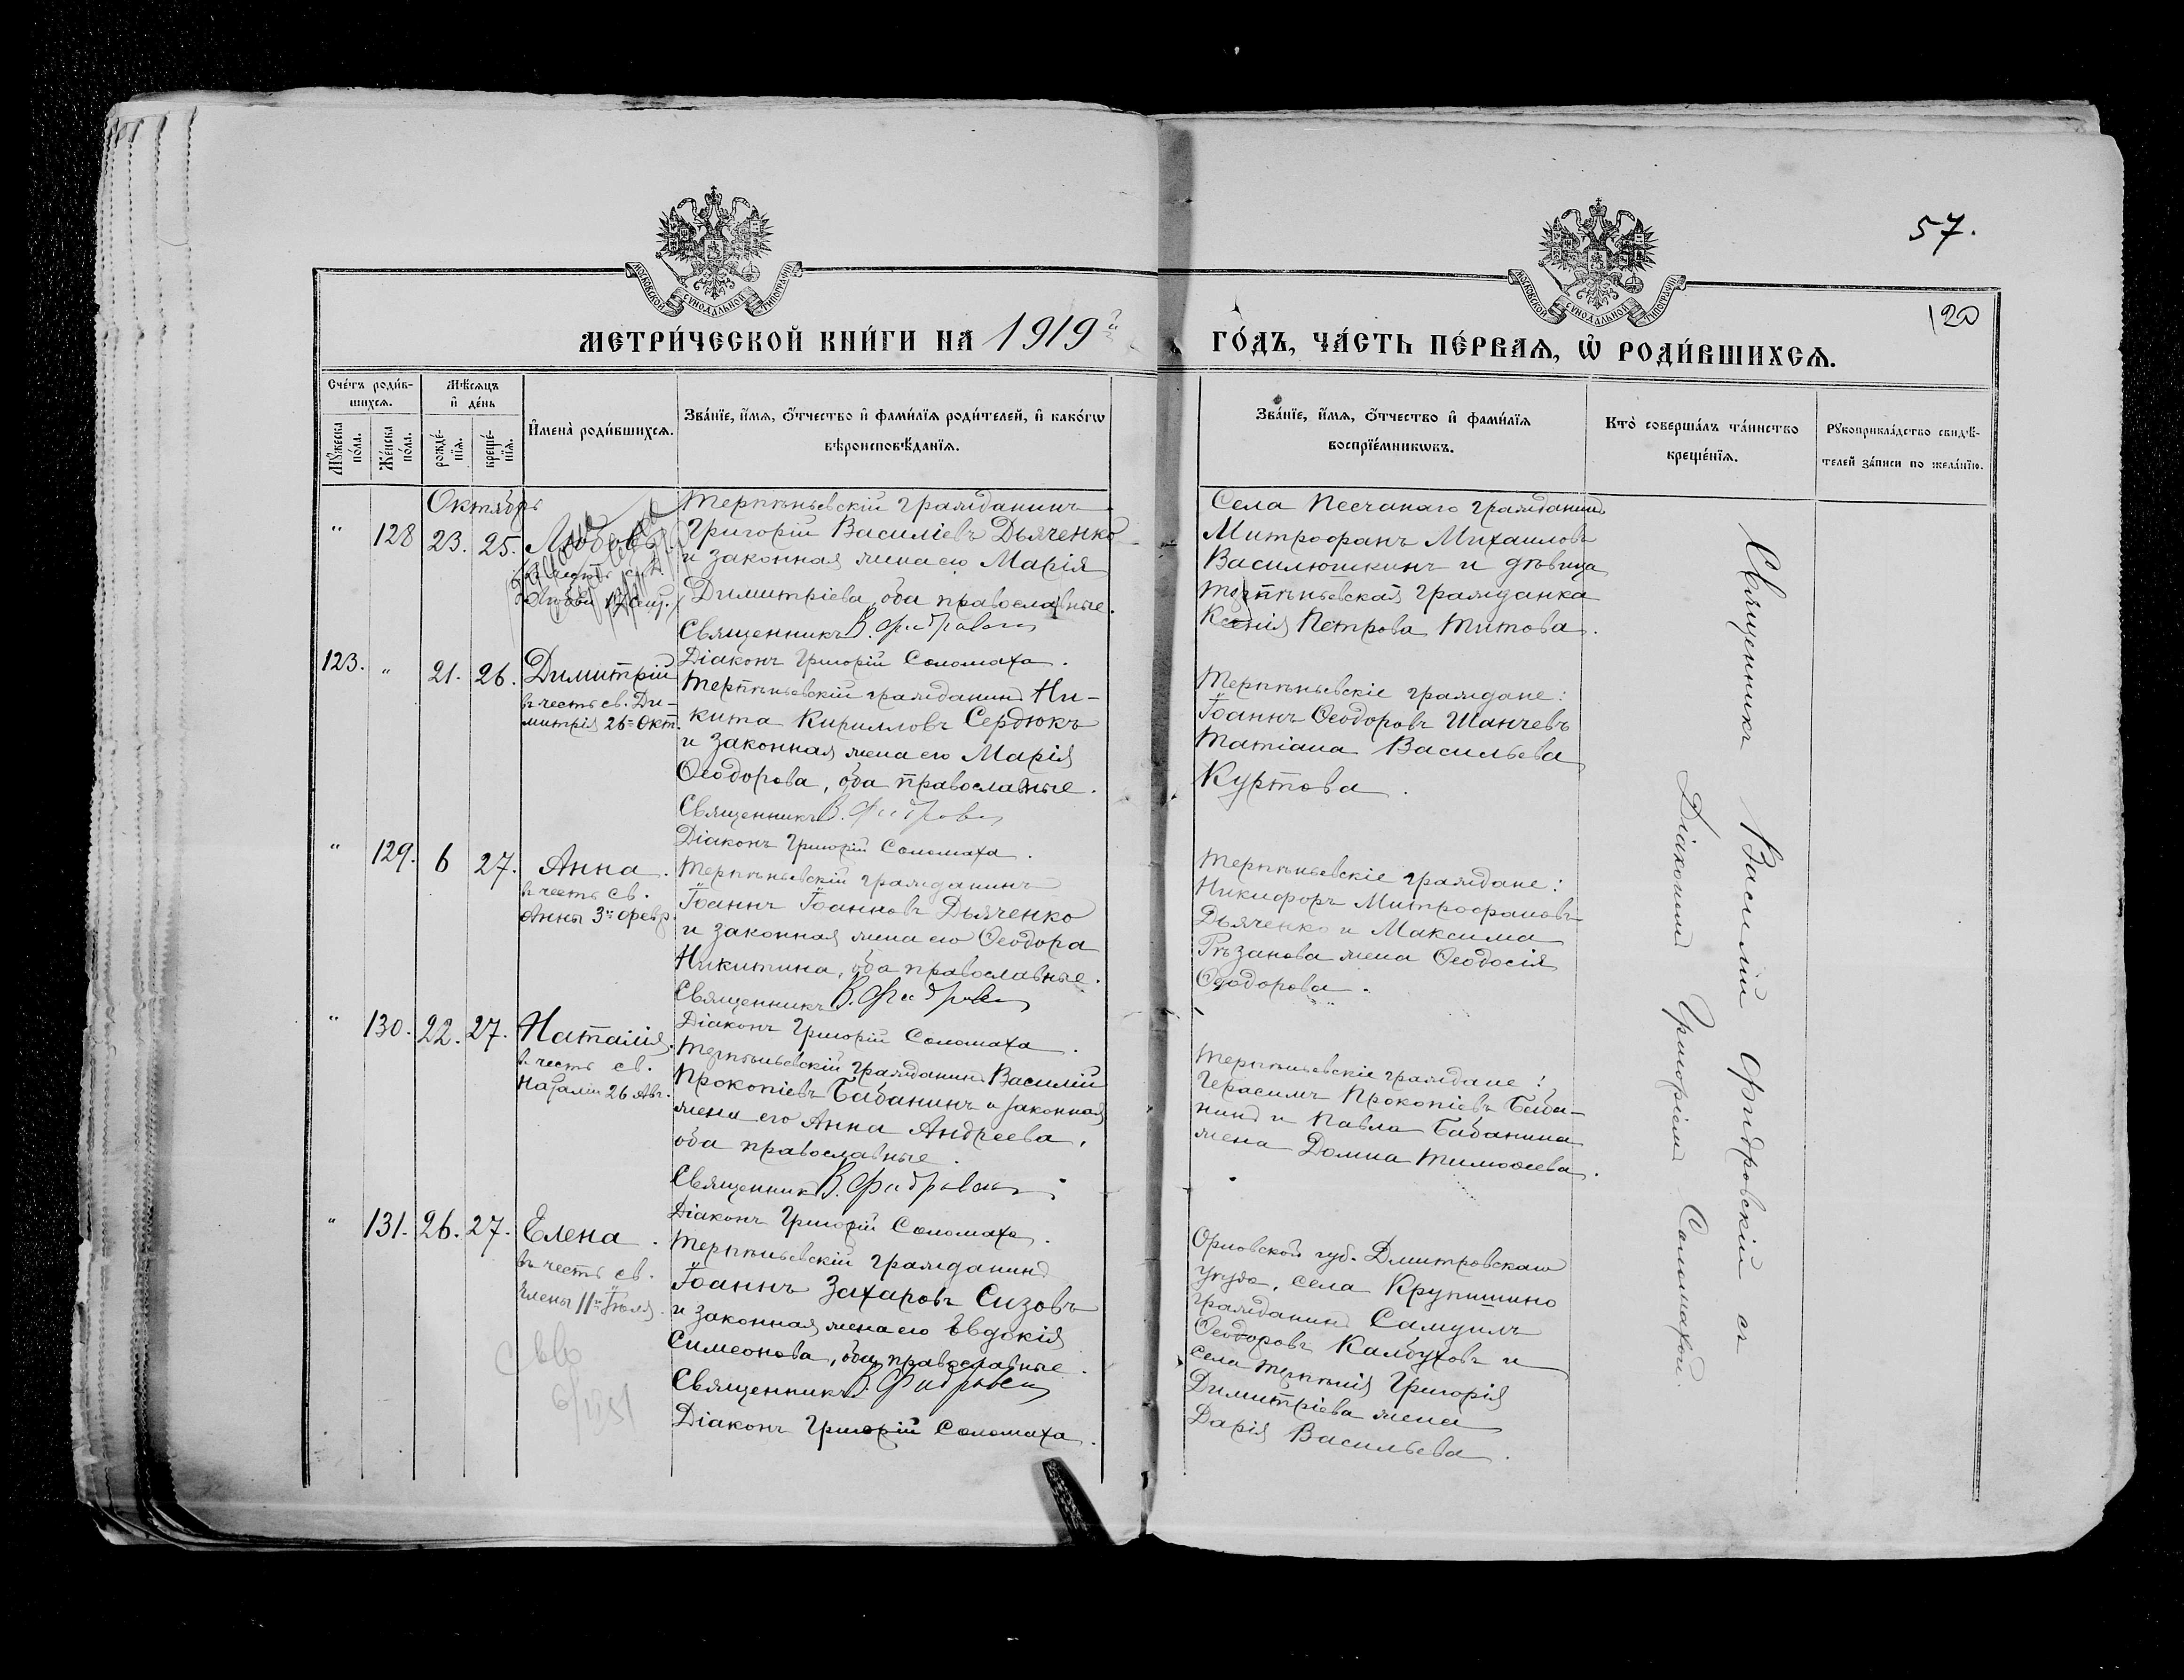 57.
120
МОСКОВСКОЙ СѴНОДАЛЬНОЙ ТИПОГРАФІИ
МОСКОВСКОЙ СѴНОДАЛЬНОЙ ТИПОГРАФІИ
МЕТРИ́ЧЕСКОЙ КНИ́ГИ НА 1919 й
ГО́ДЪ, ЧА́СТЬ ПЕ́РВАѦ, Ѡ҆ РОДИ́ВШИХСѦ.
Сче́тъ роди́в-
шихсѧ.
Мꙋ́жеска по́ла.
Же́нска по́ла.
Мѣ́сѧцъ
и҆ де́нь
рожде́-
нїѧ.
креще́-
нїѧ.
И҆мена̀ роди́вшихсѧ.
Зва́нїе, и҆́мѧ, ѻ҆́тчество и҆ фами́лїѧ роди́телей, и҆ како́гѡ
вѣроисповѣ́данїѧ.
Зва́нїе, и҆́мѧ, ѻ҆́тчество и҆ фами́лїѧ
воспрїе́мникѡвъ.
Кто̀ соверша́лъ та́инство
креще́нїѧ.
Рꙋкоприкла́дство свидѣ́-
телей за́писи по жела́нїю.
Октябрь
" 128 23. 25. Любовь
Любови 17 Сент.
Терпѣньевскій гражданинъ
Григорій Василіевъ Дьяченко
и законная жена его Марія
Димитріева, оба православные.
Священникъ В. Фидровскій
Діаконъ Григорій Соломаха.
Села Песчанаго гражданинъ
Митрофанъ Михаиловъ
Василюшкинъ и дѣвица
Терпѣньевская гражданка
Ксенія Петрова Титова.
123. " 21. 26. Димитрій
въ честь св. Ди-
митрія 26= Окт.
Терпѣньевскій гражданинъ Ни-
кита Кирилловъ Сердюкъ
и законная жена его Марія
Ѳеодорова, оба православные.
Священникъ В. Фидровскій
Діаконъ Григорій Соломаха.
Терпѣньевскіе граждане:
Іоаннъ Ѳеодоровъ Шанчевъ
Татіана Васильева
Куртова.
" 129. 6 27. Анна.
въ честь св.
Анны 3= февр.
Терпѣньевскій гражданинъ
Іоаннъ Іоанновъ Дьяченко
и законная жена его Ѳеодора
Никитина, оба православные.
Священникъ В. Фидровскій
Діаконъ Григорій Соломаха.
Терпѣньевскіе граждане:
Никифоръ Митрофановъ
Дьяченко и Максима
Рѣзанова жена Ѳеодосія
Ѳеодорова.
" 130. 22. 27. Наталія.
въ честь св.
Наталіи 26 Авг.
Терпѣньевскій гражданинъ Василій
Прокопіевъ Бабанинъ и законная
жена его Анна Андреева,
оба православные.
Священникъ В. Фидровскій
Діаконъ Григорій Соломаха.
Терпѣньевскіе граждане:
Герасимъ Прокопіевъ Баба-
нинъ и Павла Бабанина
жена Домна Тимоѳеева.
" 131. 26. 27. Елена.
въ честь св.
Елены 11= Іюля.
Терпѣньевскій гражданинъ
Іоаннъ Захаровъ Сизовъ
и законная жена его Евдокія
Симеонова, оба православные.
Священникъ В. Фидровскій
Діаконъ Григорій Соломаха.
Орловской губ. Дмитровскаго
уѣзда, села Крупишино
гражданинъ Самуилъ
Ѳеодоровъ Калбуховъ и
села Терпѣнія Григорія
Димитріева жена
Дарія Васильева.
Священникъ Василій Фидровскій съ
Діакономъ Григоріемъ Соломахой.